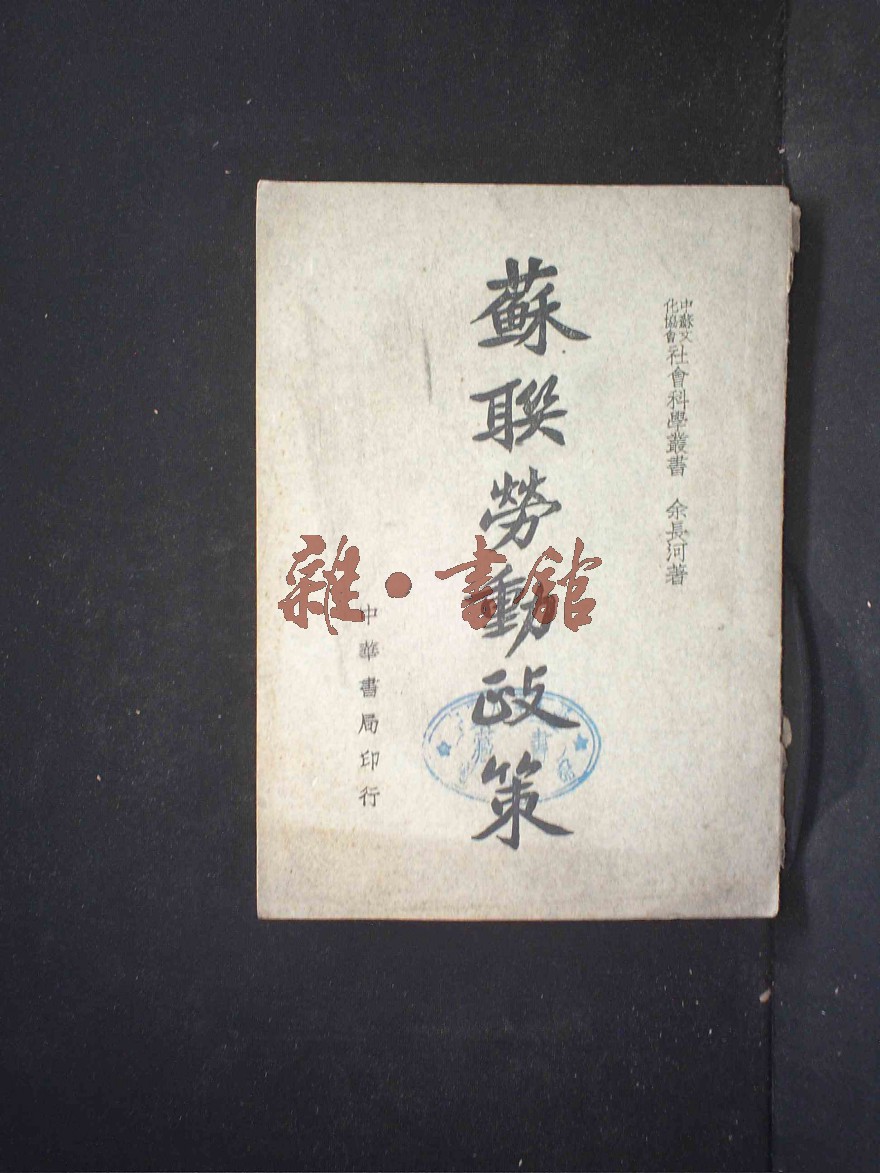 中蘇文化協會社會科學叢書 余長河著
蘇聯勞動政策
中華書局印行
雜·書館